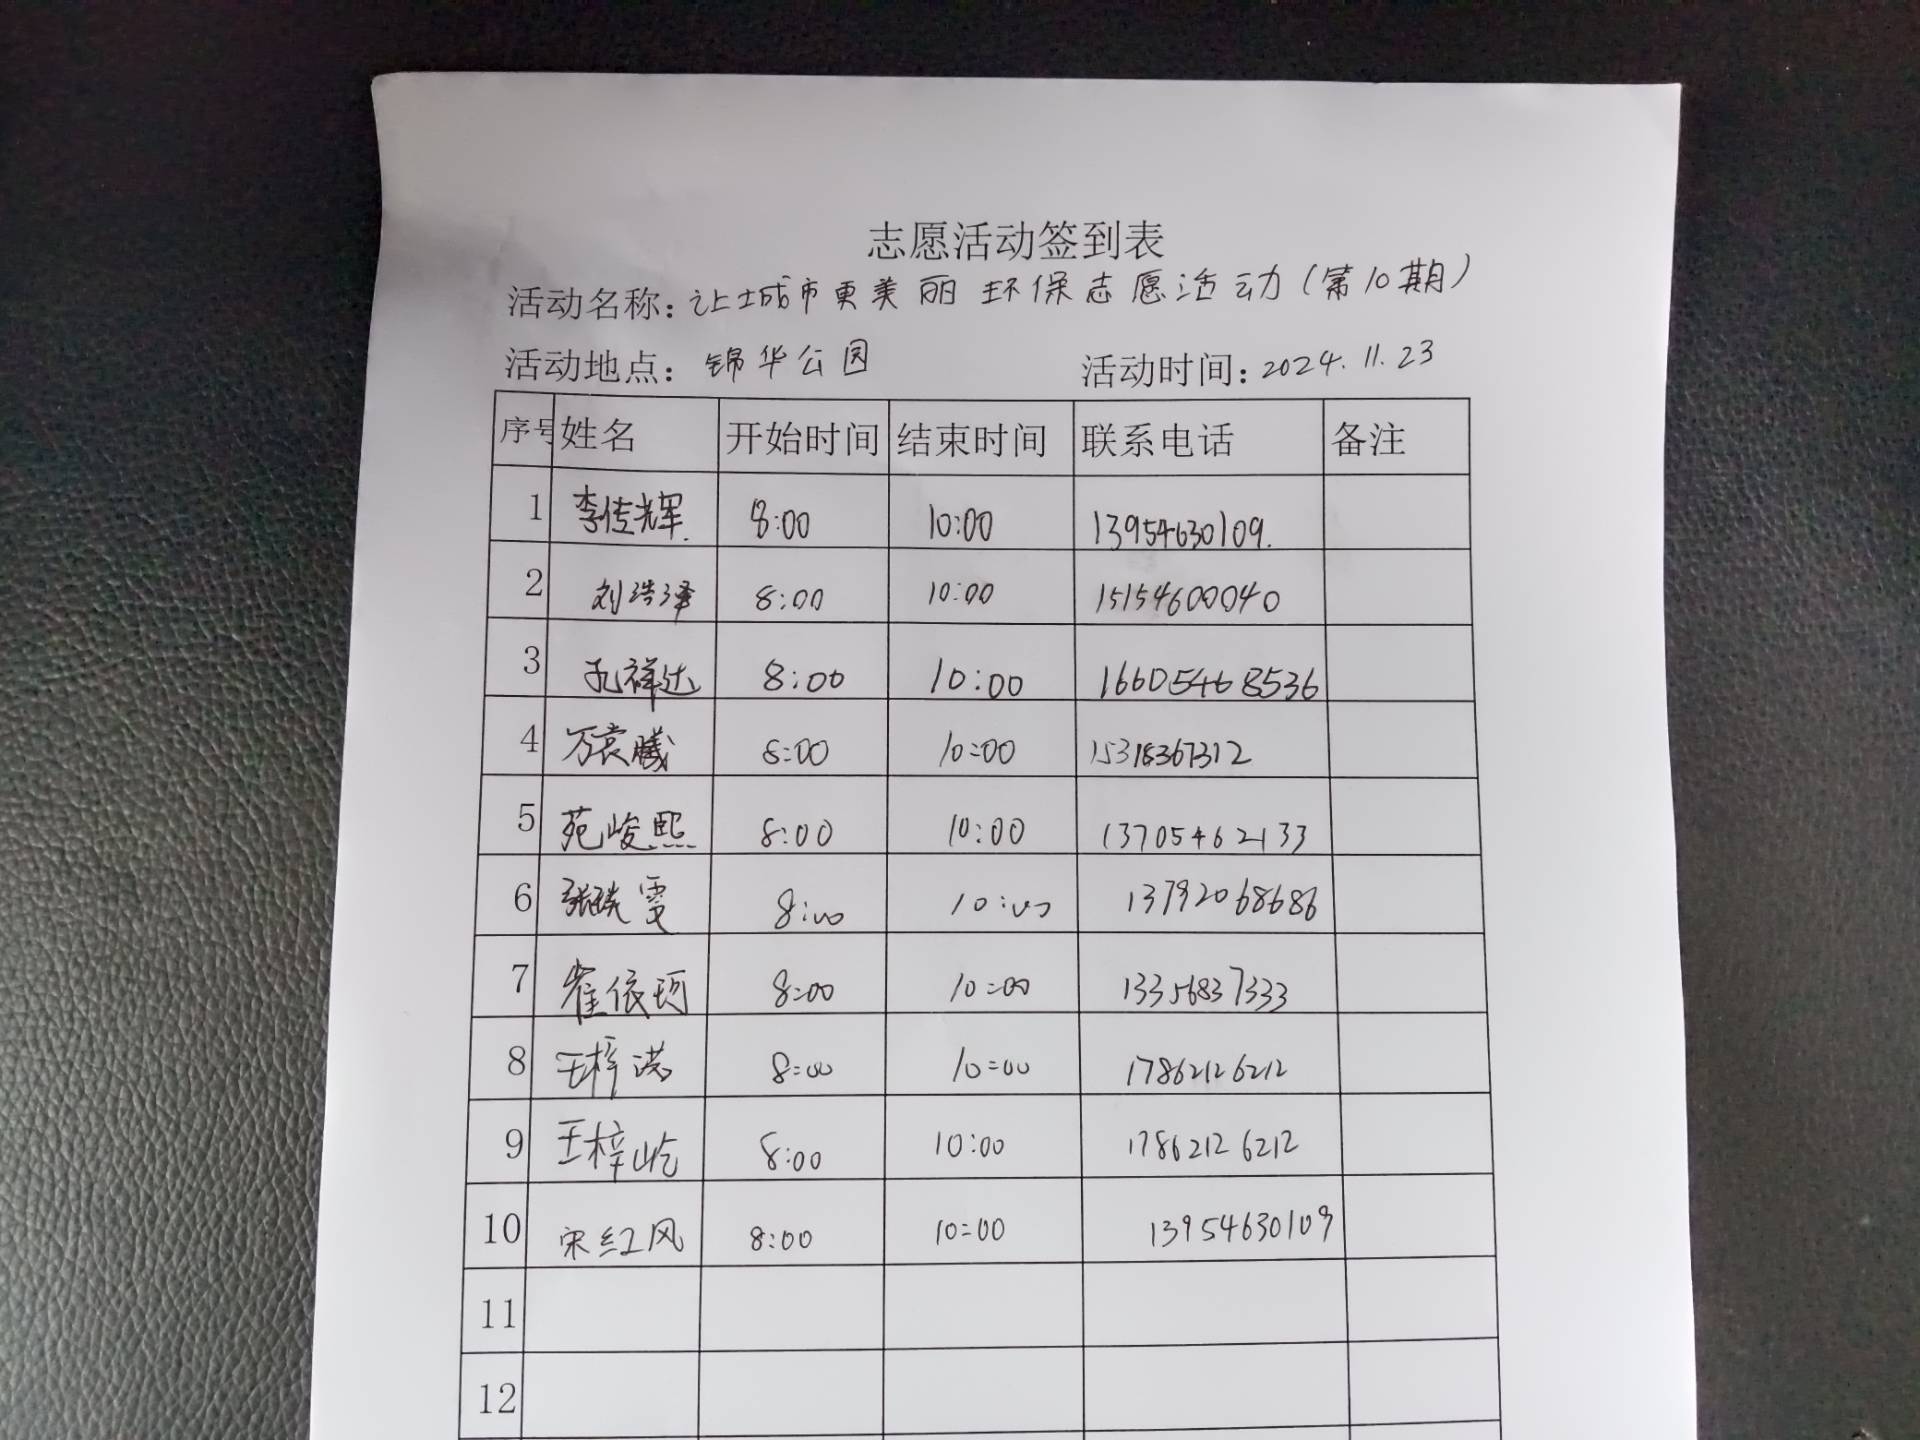 志愿活动签到表
活动名称：让城市更美丽 环保志愿活动（第10期）
活动地点：锦华公园 活动时间：2024.11.23
序号 姓名 开始时间 结束时间 联系电话 备注
1 李传辉. 8:00 10:00 13954630109.
2 刘浩泽 8:00 10:00 15154600040
3 孔祥达 8:00 10:00 16605468536
4 万袁曦 8:00 10:00 15318367312
5 苑峻熙 8:00 10:00 13705462133
6 8:00 10:00 13792068686
7 崔依珂 8:00 10:00 13356837333
8 王梓诺 8:00 10:00 17862126212
9 王梓屹 8:00 10:00 17862126212
10 宋红风 8:00 10:00 13954630109
11
12